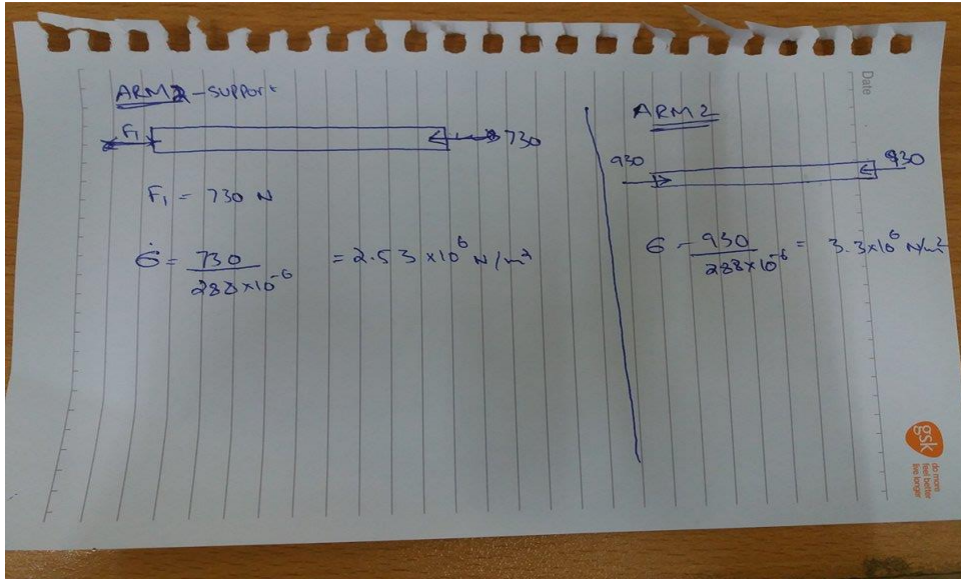 ARM2-support
F1
730
F1 = 730 N
σ = 730 / 288×10^-6 = 2.53 ×10^6 N/m²
Date
ARM2
930
930
σ = 930 / 288×10^-6 = 3.3×10^6 N/m²
gsk
do more
feel better
live longer